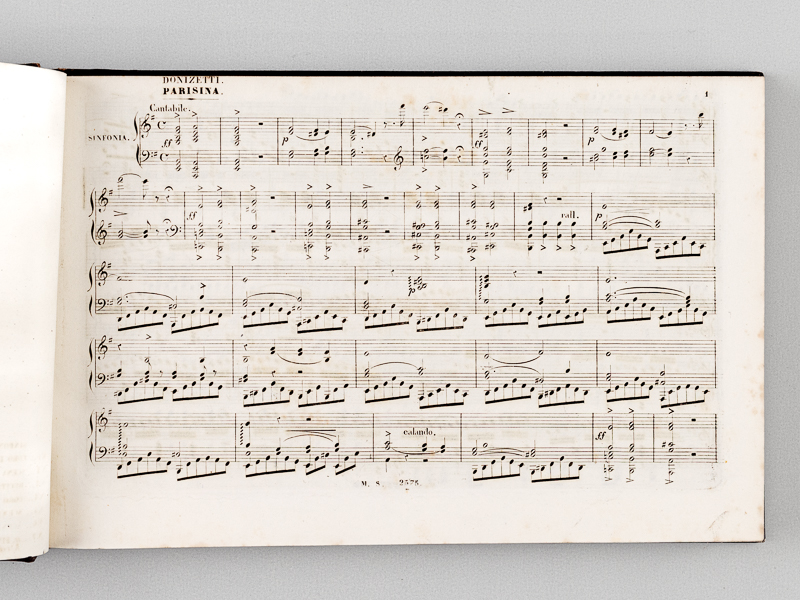 DONIZETTI.
PARISINA.
1
Cantabile.
SINFONIA.
ff
p
ff
p
ff
rall.
p
p
calando.
ff
M. S. 2576.